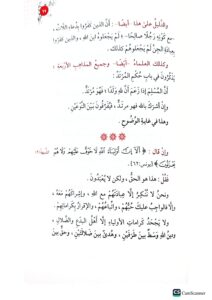 ٦٩
والدَّليلُ على هذا أيضًا: أنَّ الذينَ كَفَرُوا بِدُعاءِ اللَّات،
معَ كَونِه رَجُلًا صالِحًا؛ لم يَجعَلُوهُ ابنَ اللهِ، والذينَ كفَرُوا
بِعبادةِ الجنِّ لَم يَجعَلُوهُم كذلك.
وكذلك العلماءُ -أيضًا- وجميع المذاهبِ الأربعةِ،
يَذكُرونَ في بابِ حُكْمِ المُرْتَدِّ:
أنَّ المُسلِمَ إذا زعَمَ أنَّ للهِ ولَدًا؛ فَهُو مُرتَدٌّ.
وإنْ أشرَكَ باللهِ فَهو مرتدٌّ، فيُفَرِّقُونَ بَينَ النَّوعَينِ.
وهذا في غايةِ الوُضُوحِ.
وإنْ قالَ: ﴿أَلَآ إِنَّ أَوۡلِيَآءَ ٱللَّهِ لَا خَوۡفٌ عَلَيۡهِمۡ وَلَا هُمۡ
يَحۡزَنُونَ﴾ [يونس: ٦٢].
فقُلْ: هذا هو الحقُّ، ولكن لا يُعْبَدُونَ.
ونحنُ لا نُنكِرُ إلَّا عِبادتَهُم معَ اللهِ، وإشراكَهُم مَعَهُ،
وإلَّا فالواجِبُ عليكَ حُبُّهُم، واتِّباعُهُم، والإقرارُ بِكَراماتِهِم.
ولا يَجْحَدُ كَراماتِ الأولياءِ إلَّا أهلُ البِدَعِ والضَّلالِ،
ودِينُ اللهِ وسَطٌ بينَ طرَفَينِ، وهُدًى بينَ ضَلالَتَينِ، وحقٌّ بينَ
CS CamScanner